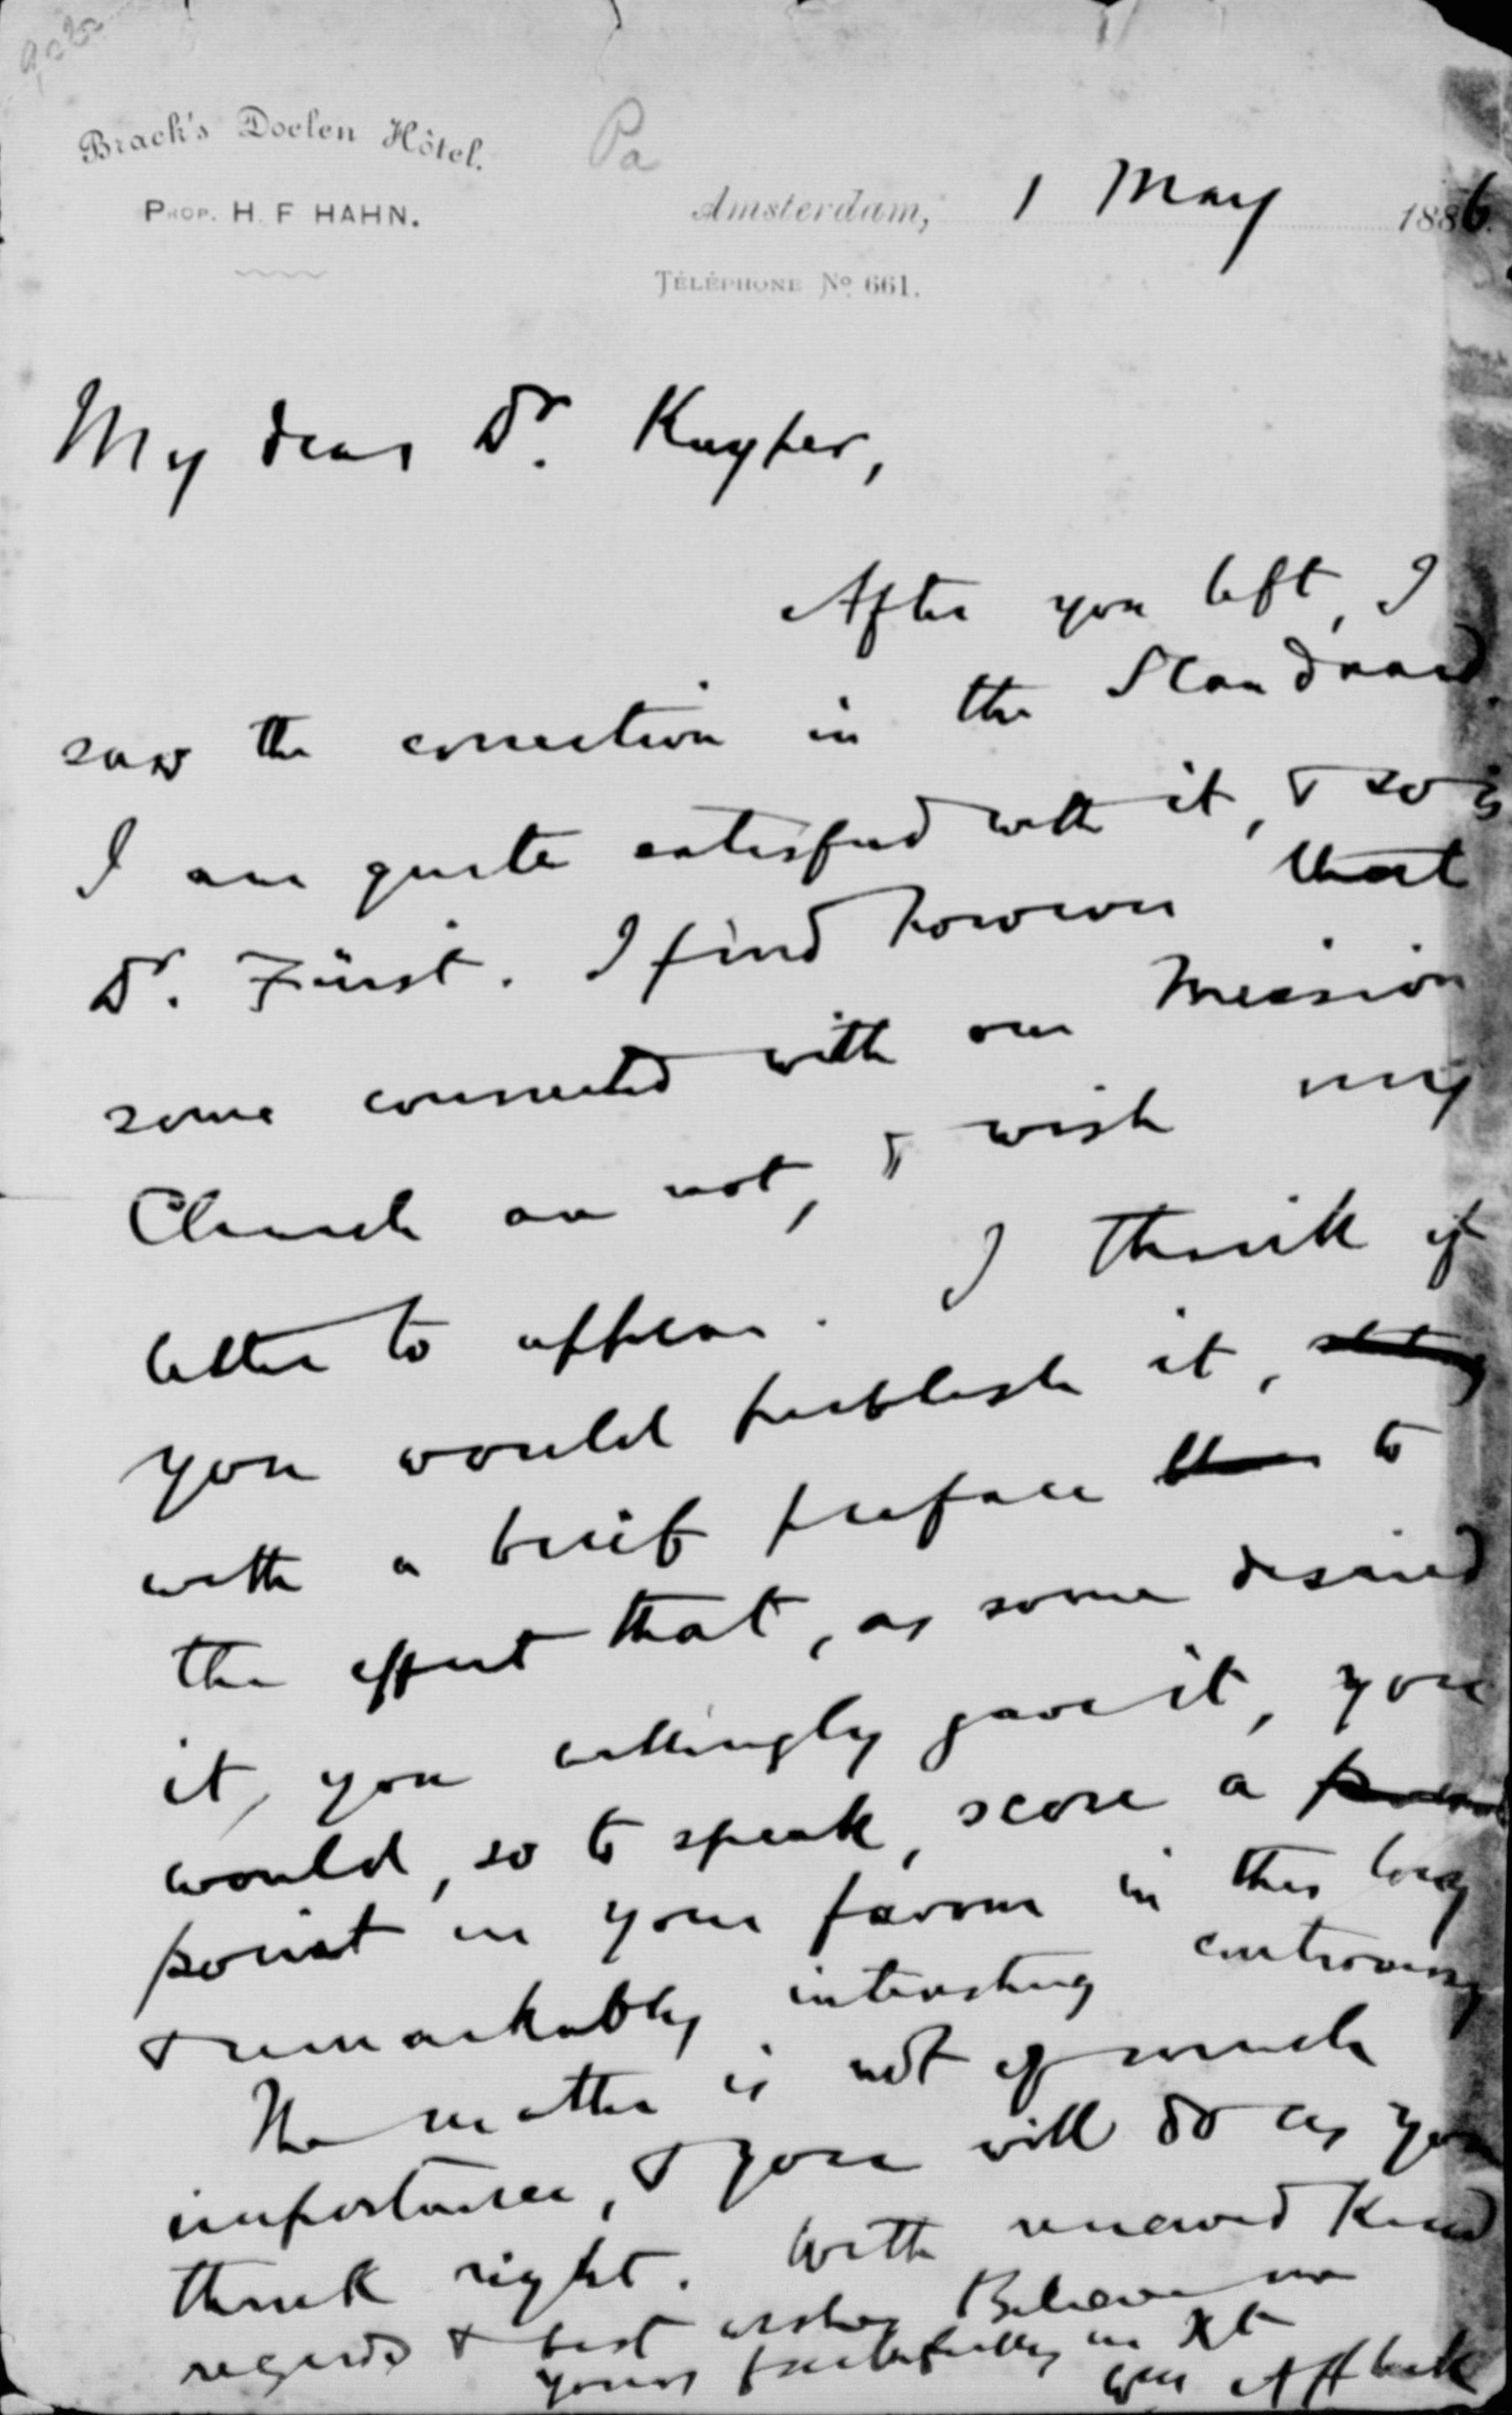 Brack's Doelen Hôtel.
PROP. H. F HAHN.
Pa
Amsterdam, 1 May 1886.
TÉLÉPHONE No. 661.
My dear Dr. Kuyper,
After you left, I
saw the correction in the Standaard.
I am quite satisfied with it, & so is
Dr. Fürst. I find however that
some connected with our Mission
Church are not, & wish my
letter to appear. I think if
you would publish it,
with a brief preface to
the effect that, as some desired
it, you willingly gave it, you
would, so to speak, score a
point in your favour in this long
& remarkably interesting controversy
The matter is not of much
importance, & you will do as you
think right. With renewed kind
regards & best wishes Believe me
yours faithfully in Xt
Wm Affleck